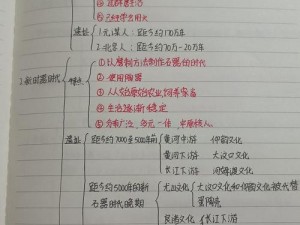 ④过群居生活
⑤已经会使用火
遗址
1.元谋人：距今约170万年
2.北京人：距今约70万-20万年
2.新石器时代
特点
①以磨制方法制作石器的时代
②使用陶器
③人从事原始农业,饲养家畜
④生活逐渐稳定
⑤分布广泛，多元一体，中原核心
遗址
距今约7000至5000年前
黄河中游 仰韶文化
黄河下游 大汶口文化
长江下游 河姆渡文化
距今约5000年的新石器时代晚期
龙山文化
大汶口文化和仰韶文化被代替
黑陶
良渚文化 长江下游